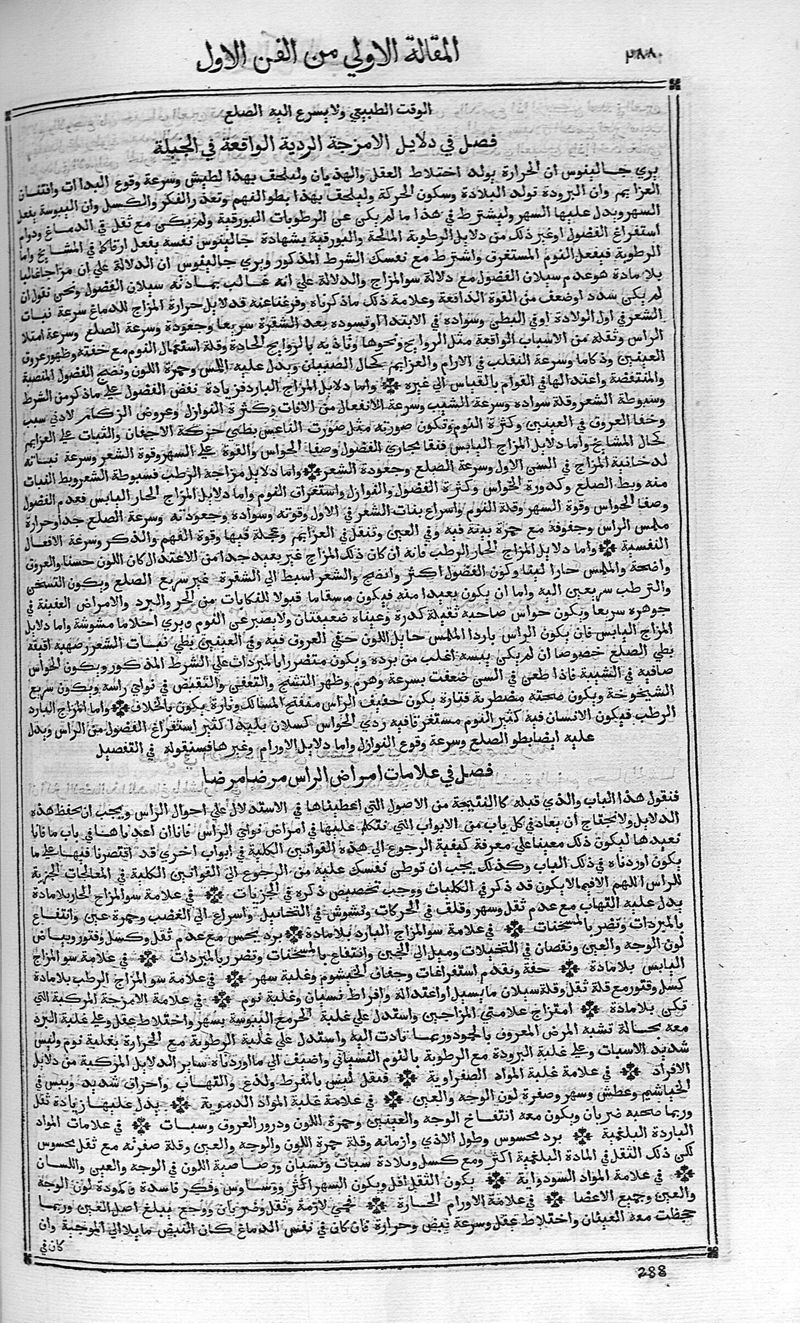 ٢٨٨
المقالة الاولي من الفن الاول
الوقت الطبيعي ولا يسرع اليه الصلع
فصل في دلايل الامزجة الردية الواقعة في الجبلة
يري جالينوس ان الحرارة يولد اختلاط العقل والهذيان وليلحف بهذا لطيش وسرعة وقوع البدأت وافتنان
العزايم وان البرودة تولد البلادة وسكون الحركة وليلحف بهذا بطو الفهم وتعذر والفكر والكسل وان اليبوسة يفعل
السهر ويدل عليها السهر وليشترط في هذا ما لم يكي عن الرطوبات البورقية ولم يكي مع ثقل في الدماغ ودوام
استفراغ الفضول او غير ذلك من دلايل الرطوبة المالحة والبورقية بشهادة جالينوس نفسه يفعل ارقا في المشايخ واما
الرطوبة فيفعل النوم المستغرق واشترط مع نفسك الشرط المذكور ويري جالينوس ان الدلالة علي ان مزاجا غالبا
بلا مادة هو عدم سيلان الفضول مع دلالة سو المزاج والدلالة علي انه غالب بمادته سيلان الفضول ونحن نقول ان
لم يكي سدد او ضعف من القوة الدافعة وعلامة ذلك ما ذكرناه وفرغنا عنه قد لايل حرارة المزاج للدماغ سرعة نبات
الشعر في اول الولادة او في البطن وسواده في الابتدا او تسوده بعد الشقرة سريعا وجعودة وسرعة الصلع وسرعة امتلا
الراس وثقله من الاسباب الواقعة مثل الروايح ونحوها وتاذيه بالروايح الحادة وقلة استعمال النوم مع خفته وظهور عروق
العينين وذكاما وسرعة التقلب في الارام والعزايم كحال الصبيان ويدل عليه الملمس وحمرة اللون ونضج الفضول المنصبة
والمنتفضة واعتدالها في القوام بالقياس الي غيره واما دلايل المزاج البارد فزيادة نفض الفضول علي ما ذكر من الشرط
وسبوطة الشعر وقلة سواده وسرعة الشيب وسرعة الانفعال من الافات وكثرة النوازل وعروض الزكام لادني سبب
وخفا العروق في العينين وكثرة النوم وتكون صورته مثل صورت الناعس بطي حركة الاجفان والثبات علي العزايم
كحال المشايخ واما دلايل المزاج اليابس فنقا مجاري الفضول وصفا الحواس والقوة علي السهر وقوة الشعر وسرعة نباته
لدخانية المزاج في السن الاول وسرعة الصلع وجعودة الشعر واما دلايل مزاجة الرطب فسبوطة الشعر وبط النبات
منه وبط الصلع وكدورة الحواس وكثرة الفضول والفوازل واستغراق النوم واما دلايل المزاج الحار اليابس فعدم الفضول
وصفا الحواس وقوة السهر وقلة النوم واسراع بنات الشعر في الاول وقوته وسواده وجعودته وسرعة الصلع جدا وحرارة
ملمس الراس وجفوفة مع حمرة بينة فيه وفي العين وتنقل في العزايم وعجلة فيها وقوة الفهم والذكر وسرعة الافعال
النفسية واما دلايل المزاج الحار الرطب فانه ان كان ذلك المزاج غير بعيد جدا من الاعتدال كان اللون حسنا والعروق
واضحة والملمس حارا لينا وكون الفضول اكثر وانضج والشعر اسبط الي الشقرة غير سريع الصلع ويكون التسخن
والترطب سريعين اليه واما ان يكون بعيدا منه فيكون مسقاما قبولا للنكايات من الحر والبرد والامراض العفينة في
جوهره سريعا ويكون حواس صاحبه ثقيلة كدرة وعيناه ضعيفتان ولا يصبر عن النوم ويري احلاما مشوشة واما دلايل
المزاج اليابس فان يكون الراس باردا الملمس حايل اللون حنفي العروق فيه وفي العينين بطي نبات الشعر رصهبه اقيقه
بطي الصلع خصوصا ان لم يكي يبسه اغلب من برده ويكون متضررا بالمبردات علي الشرط المذكور ويكون الحواس
صافيه في الشبيبة فاذا طعن في السن ضعفت بسرعة وهرم وظهر التشنج والتعفن والتقبض في نواي راسه ويكون سريع
الشيخوخة ويكون صحته مضطربة فتارة يكون خفيف الراس منفتح المسالك وتارة يكون بالخلاف واما المزاج البارد
الرطب فيكون الانسان فيه كثير النوم مستغرقا فيه ردي الحواس كسلان بليدا كثير استفراغ الفضول من الراس ويدل
عليه ايضا بطو الصلع وسرعة وقوع النوازل واما دلايل الاورام وغيرها فسنقوله في التفصيل
فصل في علامات امراض الراس مرضا مرضا
فنقول هذا الباب والذي قبله كالنتيجة من الاصول التي اعطيناها في الاستدلال علي احوال الراس ويجب ان يحفظ هذه
الدلايل ولا نحتاج ان يعاد في كل باب من الابواب التي نتكلم عليها في امراض نواي الراس فانا ان اعدناها في باب ما فانا
نعيدها ليكون ذلك معينا علي معرفة كيفية الرجوع الي هذه القوانين الكلية في ابواب اخري قد اقتصرنا فيها علي ما
يكون اوردناه في ذلك الباب وكذلك يجب ان توطي نفسك عليه من الرجوع الي القوانين الكلية في المعالجات الجزية
للراس اللهم الا فيما يكون قد ذكر في الكليات ووجب تخصيص ذكره في الجزيات في علامة سو المزاج الحار بلا مادة
يدل عليه التهاب مع عدم ثقل وسهر وقلق في الحركات وتشوش في التخايل واسراع الي الغضب وحمرة عين وانتفاع
بالمبردات وتضر بالمسخنات في علامة سو المزاج البارد بلا مادة برد يحس مع عدم ثقل وكسل وفتور وبياض
لون الوجه والعين ونقصان في التخيلات وميل الي الجبن وانتفاع بالمسخنات وتضرر بالمبردات في علامة سو المزاج
اليابس بلا مادة خفة وتقدم استفراغات وجفاف الخيشوم وغلبة سهر في علامة سو المزاج الرطب بلا مادة
كسل وفتور مع قلة ثقل وقلة سيلان ما يسيل او اعتداله وافراط نسيان وغلبة نوم في علامة الامزجة المركبة التي
تكي بلا مادة امتزاج علامتي المزاجين واستدل علي غلبة الحر مع اليبوسة بسهر واختلاط عقل وعلي غلبة البرد
معه بحالة تشبه المرض المعروف بالجمود وربما تادت اليه واستدل علي غلبة الرطوبة مع الحرارة بغلبة نوم وليس
شديد الاسبات وعلي غلبة البرودة مع الرطوبة بالنوم النسياني واضيف الي ما اوردناه ساير الدلايل المركبة من دلايل
الافراد في علامة غلبة المواد الصفراوية فثقل ليس بالمفرط ولذع والتهاب واحراق شديد ويبس في
الخياشيم وعطش وسهر وصفرة لون الوجه والعين في علامة غلبة المواد الدموية يدل عليها زيادة ثقل
وربما صحبه ضربان ويكون معه انتفاخ الوجه والعينين وحمرة اللون ودرور العروف وسبات في علامات المواد
الباردة البلغمية برد محسوس وطول الاذي وازمانه وقلة حمرة اللون والوجه والعين وقلة صفرته مع ثقل محسوس
لكن ذلك الثقل في المادة البلغمية اكثر ومع كسل وبلادة سبات ونسيان ورصاصية اللون في الوجه والعين واللسان
في علامة المواد السوداوية يكون الثقل اقل ويكون السهر اكثر ووسواس وفكر فاسدة وكمودة لون الوجه
والعين وجميع الاعضا في علامة الاورام الحارة حمي لازمة وثقل وضربان ووجع يبلغ اصل العين وربما
جحظت معه العينان واختلاط عقل وسرعة نبض وحرارة فان كان في نفس الدماغ كان النبض مايلا الي الموجية وان
كان في
288